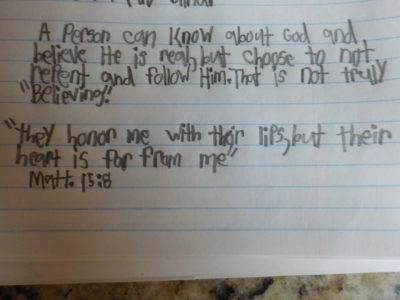 A Person can know about God and
believe He is real, but choose to not
repent and follow Him. That is not truly
"Believing."
"they honor me with their lips, but their
heart is far from me"
Matt. 15:8